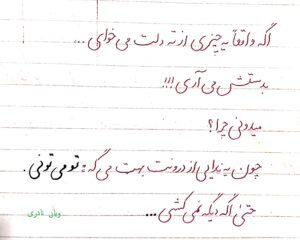 اگه واقعاً یه چیزی از ته دلت می خوای ...
بدستش می آری !!!
میدونی چرا ؟
چون یه ندایی از درونت بهت می گه : تو می تونی .
حتی اگه دیگه نمی کشی ...
نادری